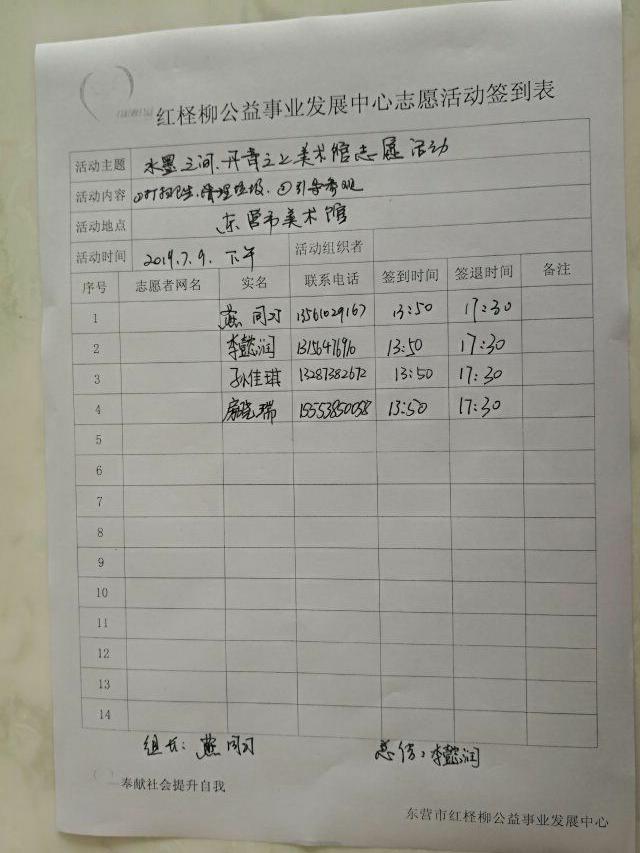 红柽柳公益事业发展中心志愿活动签到表
活动主题 水墨之间.丹青之上美术馆志愿活动
活动内容 ①打扫卫生.清理垃圾.②引导参观
活动地点 东营市美术馆
活动时间 2019.7.9. 下午 活动组织者
序号 志愿者网名 实名 联系电话 签到时间 签退时间 备注
1 燕同习 13561029167 13:50 17:30
2 李懿润 13:50 17:30
3 孙佳琪 13287382672 13:50 17:30
4 晓瑞 15553850058 13:50 17:30
5
6
7
8
9
10
11
12
13
14
组长:燕同习 总结:李懿润
奉献社会提升自我
东营市红柽柳公益事业发展中心